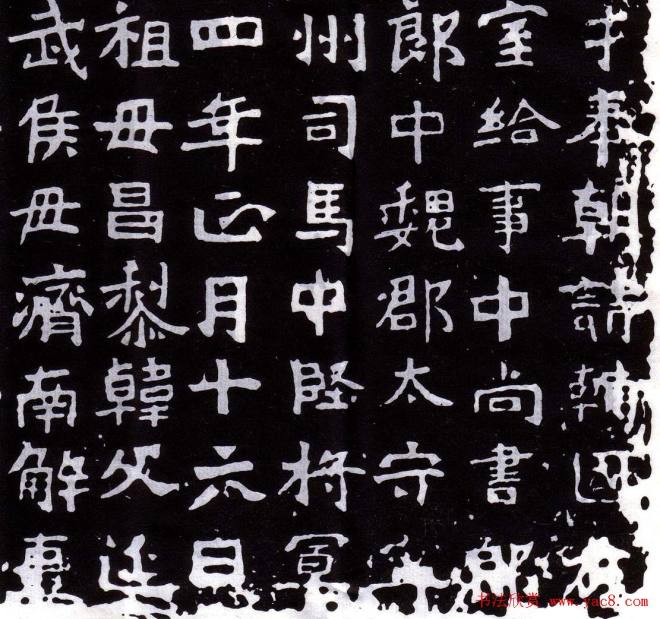 奉朝請輔國
室給事中尚書郎
郎中魏郡太守
州司馬中堅將軍
四年正月十六日
祖母昌黎韓父延
武侯毌濟南解
书法欣赏 www.yac8.com